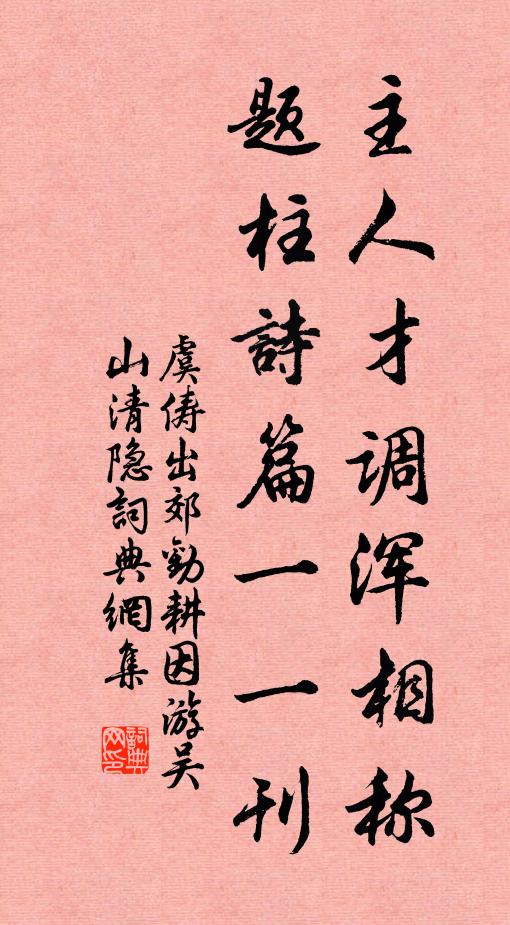 主人才调浑相称
题柱詩篇一一刊
虞俦出郊劝耕因游吴
山清隐詞典網集
詞典网印